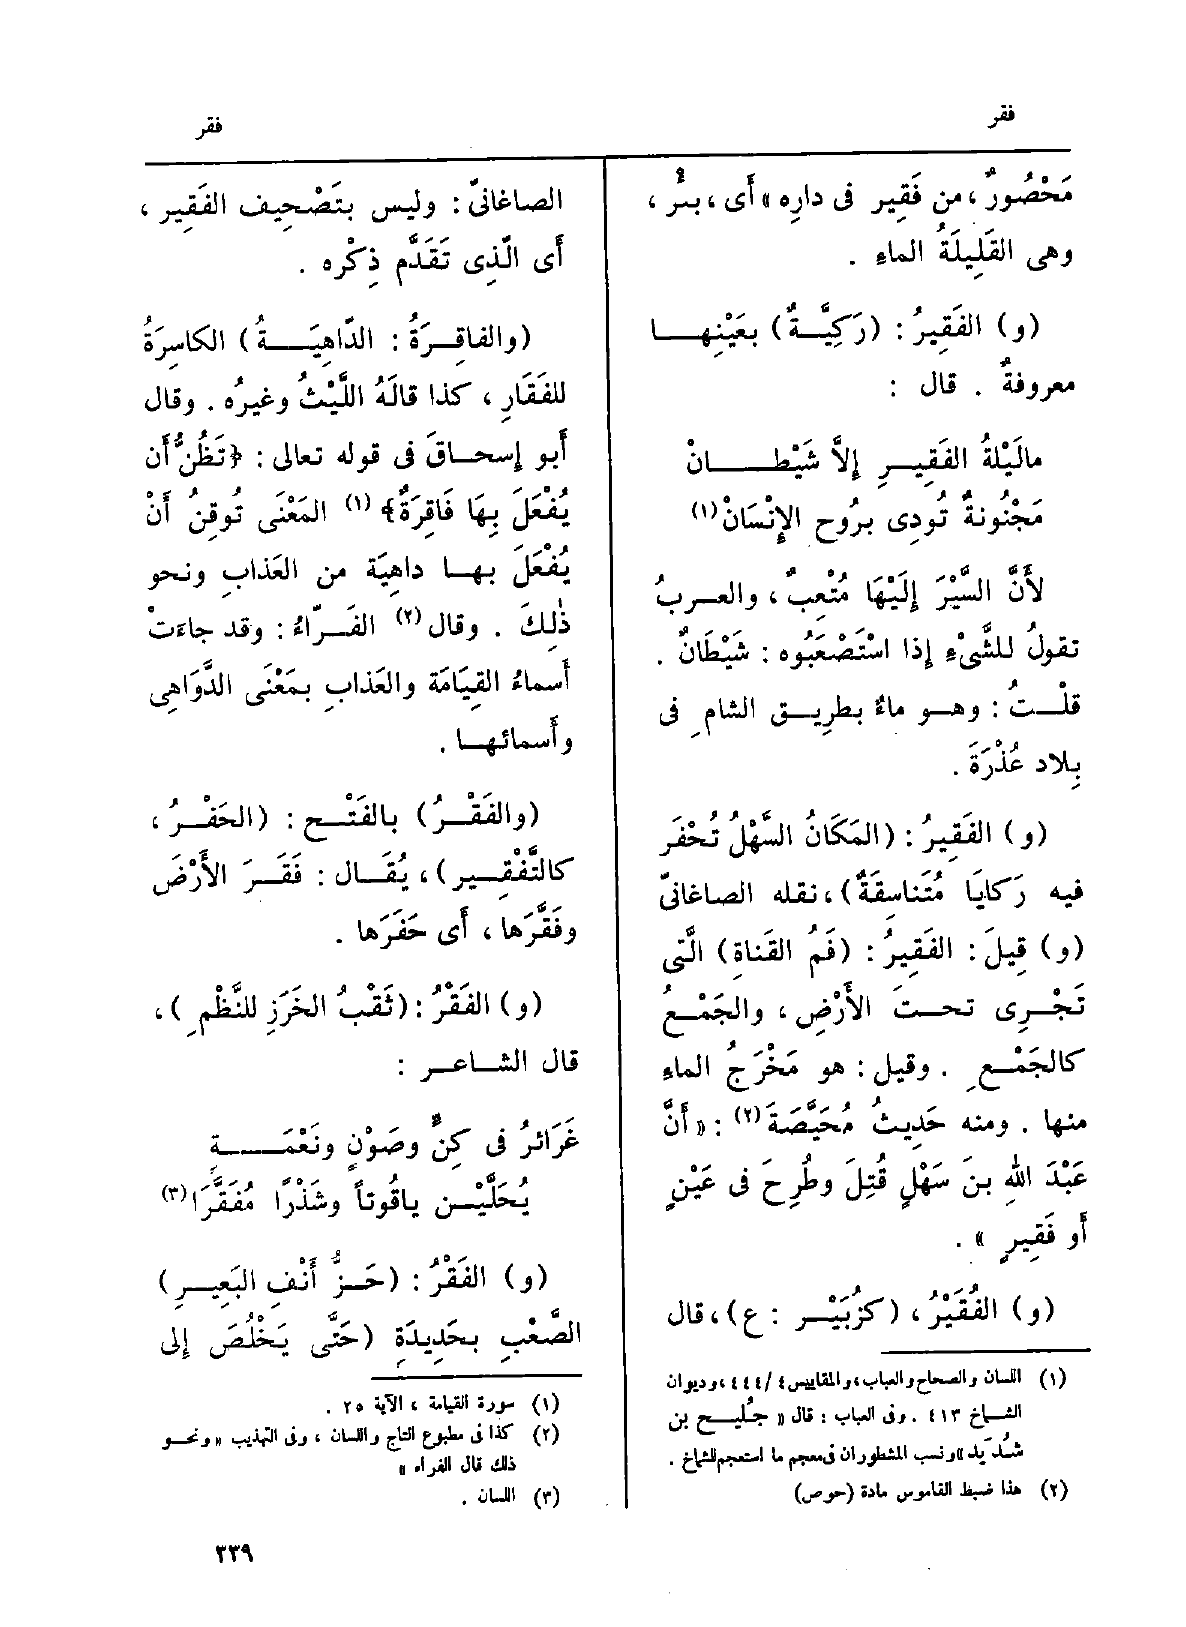 فقر
فقر
مَحْصُورٌ ، من فَقِير فى دارِه » أَى ، بئْر ،
وهى القَلِيلَةُ الماءِ .
(و) الفَقِيرُ : (رَكِيَّةٌ) بعَيْنِها
معروفةٌ . قال :
مالَيْلةُ الفَقِيرِ إِلاَّ شَيْطانْ
مَجْنُونةٌ تُودِى برُوح الإِنْسَانْ(١)
لأَنَّ السَّيْرَ إِلَيْهَا مُتْعِبٌ ، والعربُ
تقولُ للشَّىْءِ إِذا اسْتَصْعَبُوه : شَيْطَانٌ .
قلْتُ : وهو ماءٌ بطَرِيق الشامِ فى
بِلاد عُذْرَةَ .
(و) الفَقِيرُ : (المَكَانُ السَّهْلُ تُحْفَر
فيه رَكايَا مُتَناسِقَةٌ) ، نقله الصاغانىّ
(و) قِيلَ : الفَقِيرُ : (فَمُ القَناةِ) الَّتِى
تَجْرِى تحتَ الأَرْضِ ، والجَمْعُ
كالجَمْعِ . وقيل : هو مَخْرَجُ الماءِ
منها . ومنه حَدِيثُ مُحَيَّصَةَ(٢) : « أَنَّ
عَبْدَ اللهِ بنَ سَهْلٍ قُتِلَ وطُرِحَ فى عَيْنٍ
أَو فَقِيرٍ » .
(و) الفُقَيْرُ ، (كزُبَيْر : ع) ، قال
(١) اللسان والصحاح والعباب ، والمقاييس ٤ /٤٤٤ ، وديوان
الشماخ ٤١٣ . وفى العباب : قال « جُلَيح بن
شُدَيد » ونسب المشطوران فى معجم ما استعجم للشماخ .
(٢) هذا ضبط القاموس مادة (حوص)
الصاغانىّ : وليس بتَصْحِيف الفَقِير ،
أَى الَّذِى تَقَدَّم ذِكْره .
(والفاقِرَةُ : الدّاهِيَةُ) الكاسِرَةُ
للفَقَارِ ، كذا قالَهُ اللَّيْثُ وغيرُه . وقال
أَبو إِسحاقَ فى قوله تعالى : ﴿تَظُنُّ أَن
يُفْعَلَ بِهَا فَاقِرَةٌ﴾ (١) المَعْنَى تُوقِنُ أَنْ
يُفْعَلَ بها داهِيَة من العَذابِ ونحو
ذٰلِكَ . وقال(٢) الفَرّاءُ : وقد جاءَتْ
أَسماءُ القِيَامَة والعَذابِ بمَعْنَى الدَّوَاهِى
وأَسمائها .
(والفَقْرُ) بالفَتْح : (الحَفْرُ ،
كالتَّفْقِير) ، يُقَال : فَقَرَ الأَرْضَ
وفَقَّرَها ، أَى حَفَرَها .
(و) الفَقْرُ : (ثَقْبُ الخَرَزِ للنَّظْمِ) ،
قال الشاعر :
غَرَائرُ فى كِنٍّ وصَوْنٍ ونَعْمَةٍ
يُحَلَّيْن ياقُوتاً وشَذْرًا مُفَقَّرَا(٣)
(و) الفَقْرُ : (حَزُّ أَنْفِ البَعِيرِ)
الصَّعْبِ بحَدِيدَةٍ (حَتَّى يَخْلُصَ إِلى
(١) سورة القيامة ، الآية ٢٥ .
(٢) كذا فى مطبوع التاج واللسان ، وفى التهذيب « ونحو
ذلك قال الفراء »
(٣) اللسان .
٣٣٩